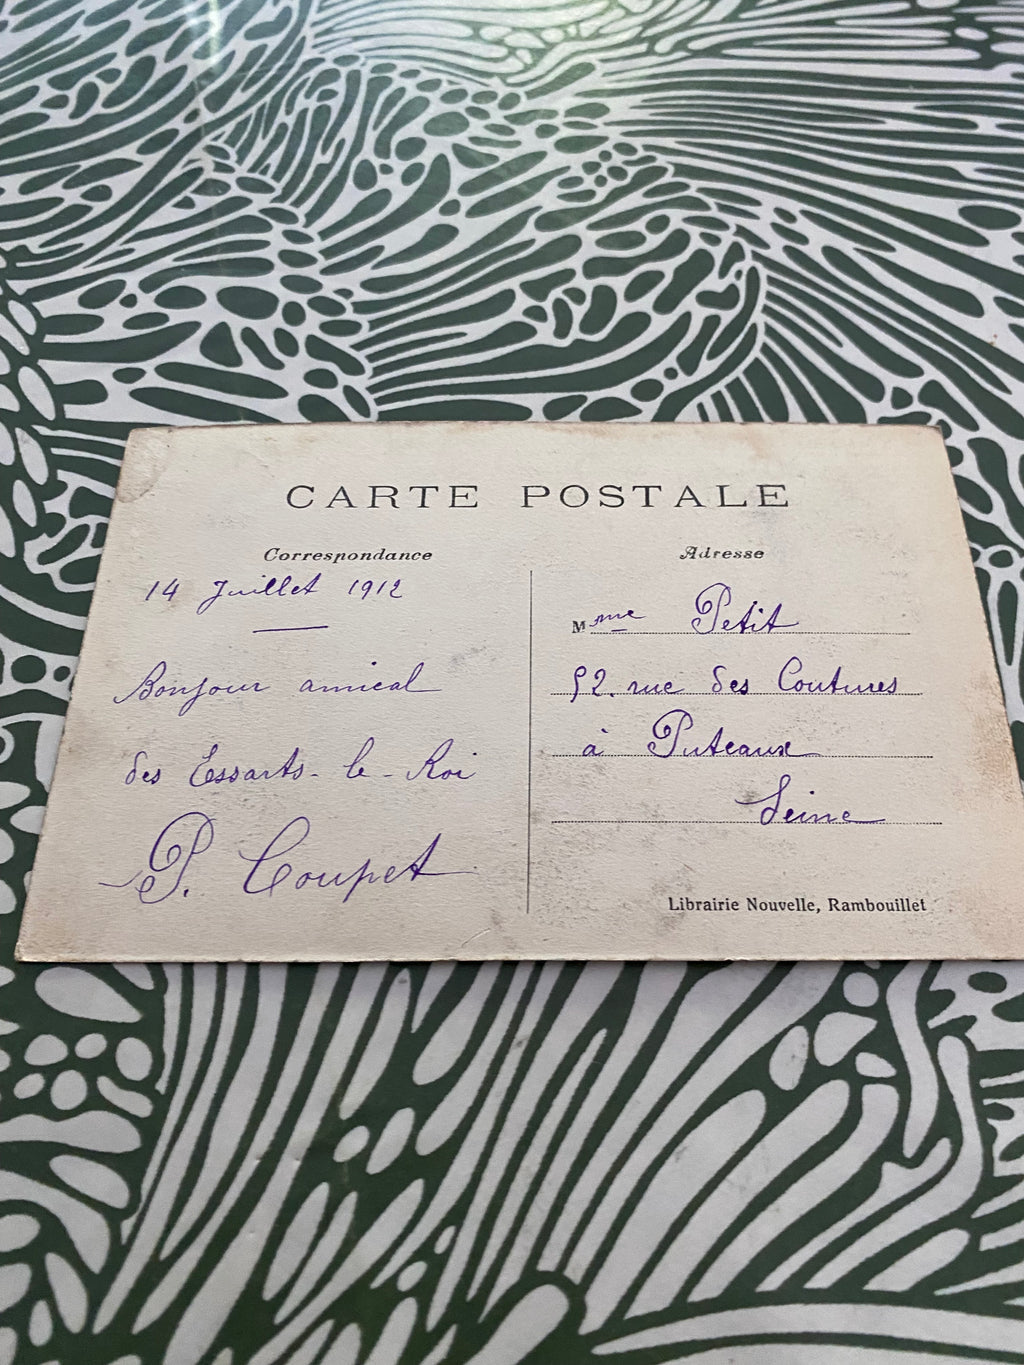 CARTE POSTALE
Correspondance
14 Juillet 1912
Bonjour amical
des Essarts-le-Roi
P. Coupet
Adresse
Mme Petit
52. rue des Coutures
à Puteaux
Seine
Librairie Nouvelle, Rambouillet